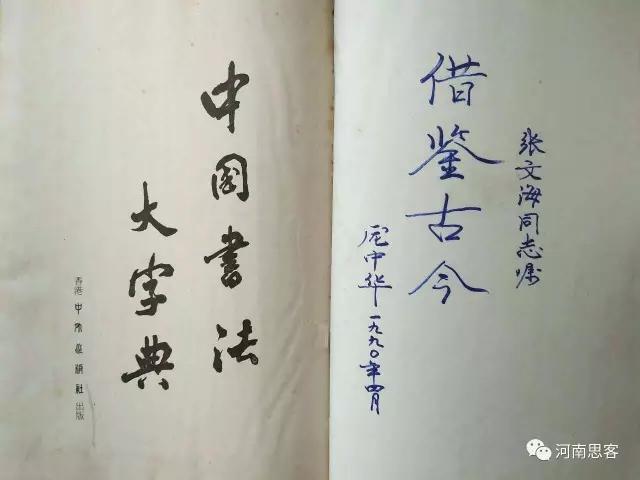 张文海同志嘱
借鉴古今
庞中华一九九〇年四月
中国書法
大字典
香港中外出版社出版
河南思客